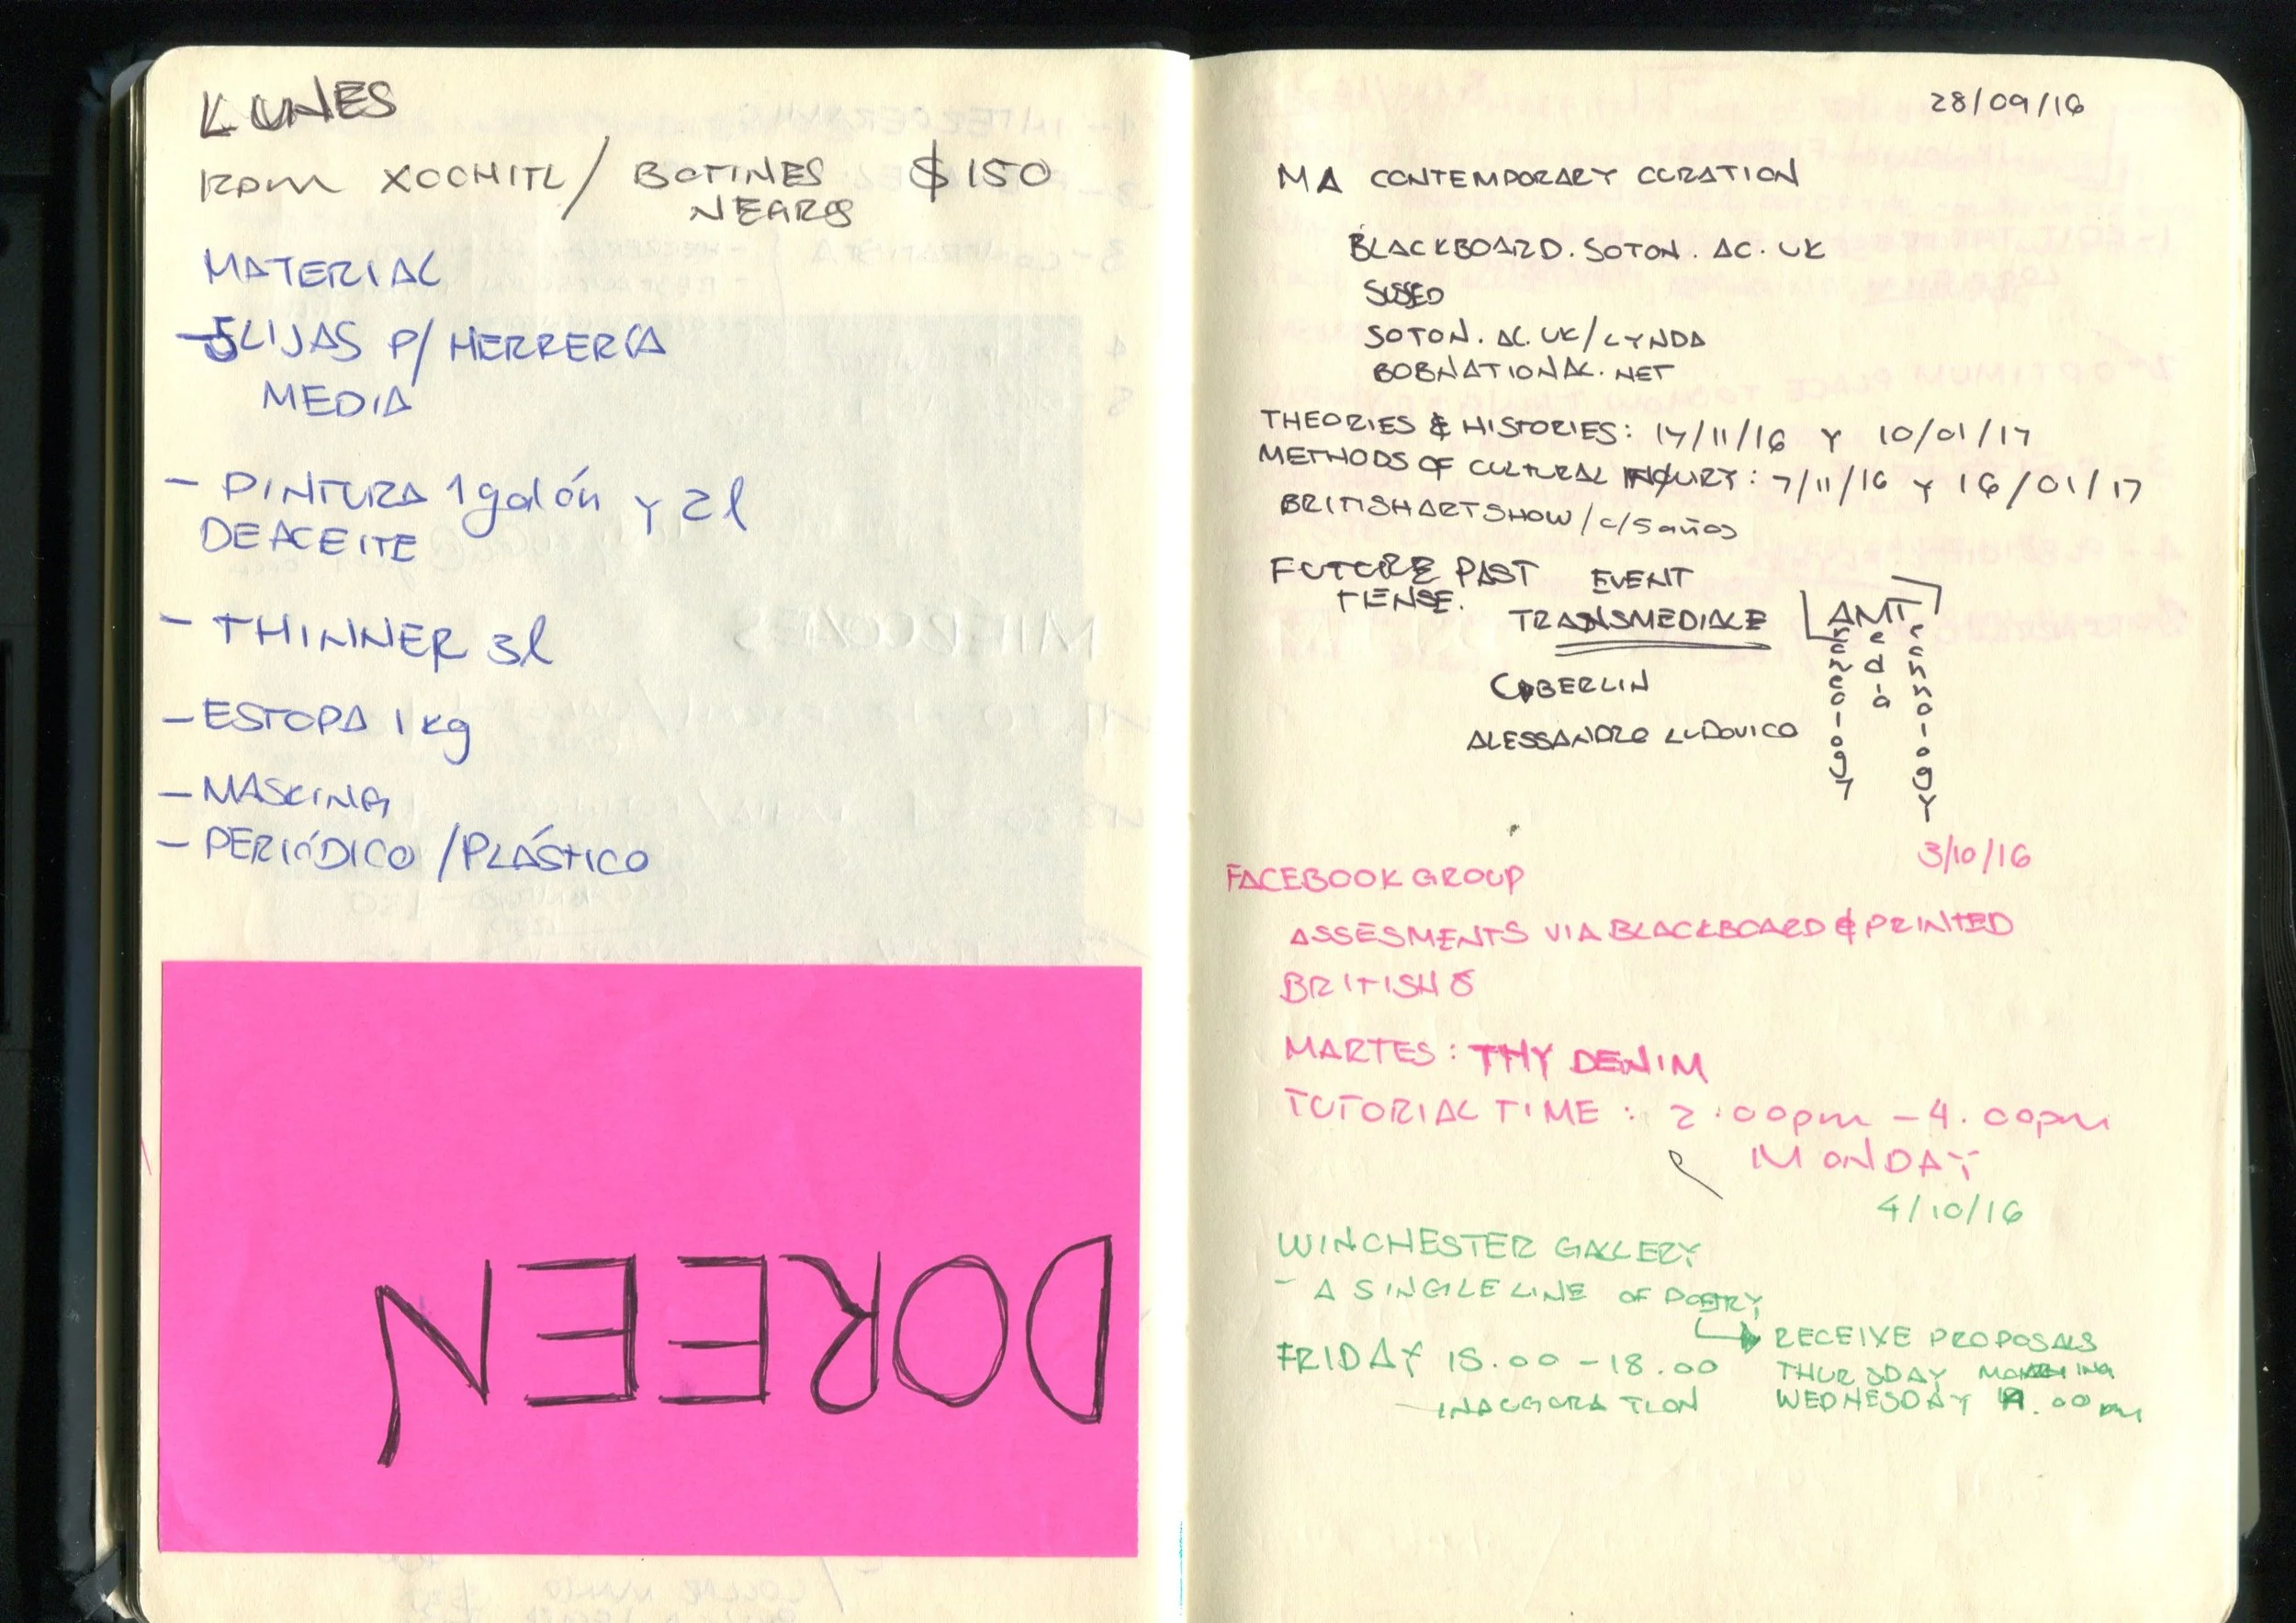 LUNES
XOCHITL / BOTINES $150
NEGROS
MATERIAL
- 5 LIJAS P/ HERRERÍA
MEDIA
- PINTURA 1 galón y 2 l
DE ACEITE
- THINNER 3l
- ESTOPA 1 kg
- MASKING
- PERIÓDICO / PLÁSTICO
DOREEN
28/09/16
MA CONTEMPORARY CURATION
BLACKBOARD.SOTON.AC.UK
SUSSED
SOTON.AC.UK/LYNDA
BOBNATIONAL.NET
THEORIES & HISTORIES: 17/11/16 Y 10/01/17
METHODS OF CULTURAL INQUIRY: 7/11/16 Y 16/01/17
BRITISH ART SHOW / c/5 años
FUTURE PAST EVENT
TENSE.
TRANSMEDIALE
AMT
Archeology
Media
Technology
BERLIN
ALESSANDRO LUDOVICO
3/10/16
FACEBOOK GROUP
ASSESMENTS VIA BLACKBOARD & PRINTED
BRITISH 8
MARTES: THY DENIM
TUTORIAL TIME: 2:00pm - 4.00pm
MONDAY
4/10/16
WINCHESTER GALLERY
- A SINGLE LINE OF POETRY
RECEIVE PROPOSALS
FRIDAY 15.00 - 18.00
THURSDAY MORNING
WEDNESDAY .00 pm
INAUGURATION